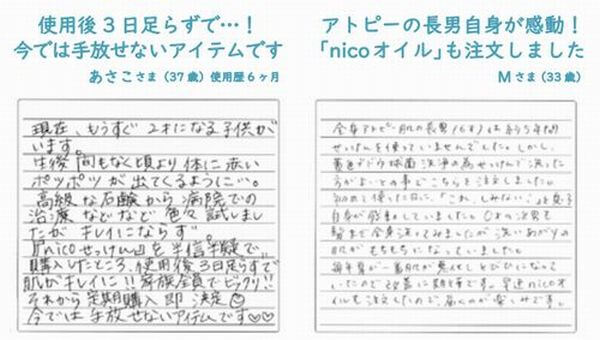 使用後3日足らずで…!
今では手放せないアイテムです
あさこさま(37歳)使用歴6ヶ月
現在、もうすぐ2才になる子供が
います。
生後間もなく頃より体に赤い
ポツポツが出てくるように…。
高級な石鹸から病院での
治療などなど色々試しまし
たがキレイにならず。
『nicoせっけん』を半信半疑で
購入したところ、使用後3日足らずで
肌がキレイに!!家族全員でビックリ!!
それから定期購入即決定
今では手放せないアイテムです♡♡
アトピーの長男自身が感動!
「nicoオイル」も注文しました
Mさま(33歳)
全身アトピー肌の長男(6才)は約5年間
せっけんを使っていませんでした。しかし、
黄色ブドウ球菌洗浄の為せっけんで洗った
方がよいとの事でこちらを注文しました。
初めて使った日に、「これ、しみない」と息子
自身が感動していました。0才の次男も
全身洗ってみましたが洗いあがりの
肌がもちもちになっていました。
毎年夏が一番肌が悪化しとびひになって
いたので改善に期待です。早速nicoオ
イルも注文したので、届くのが楽しみです。